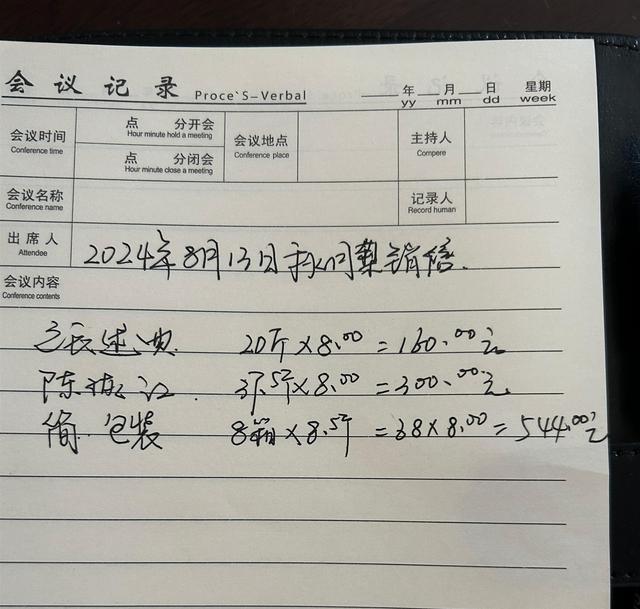 会 议 记 录 Proce`S-Verbal 年 yy 月 mm 日 dd 星期 week
会议时间 Conference time 点 分开会 Hour minute hold a meeting 会议地点 Conference place 主持人 Compere
点 分闭会 Hour minute close a meeting
会议名称 Conference name 记录人 Record human
出 席 人 Attendee 2024年8月13日 销售
会议内容 Conference contents
20斤×8.00=160.00元
陈 江 37.5斤×8.00=300.00元
简 包装 8箱×8.5斤=68×8.00=544.00元